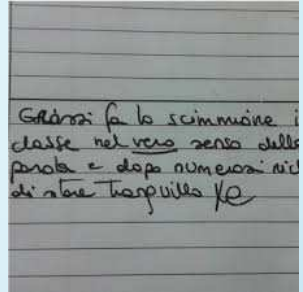 Grossi fa lo scimmione i
classe nel vero senso della
parola e dopo numerosi ric
di stare tranquillo